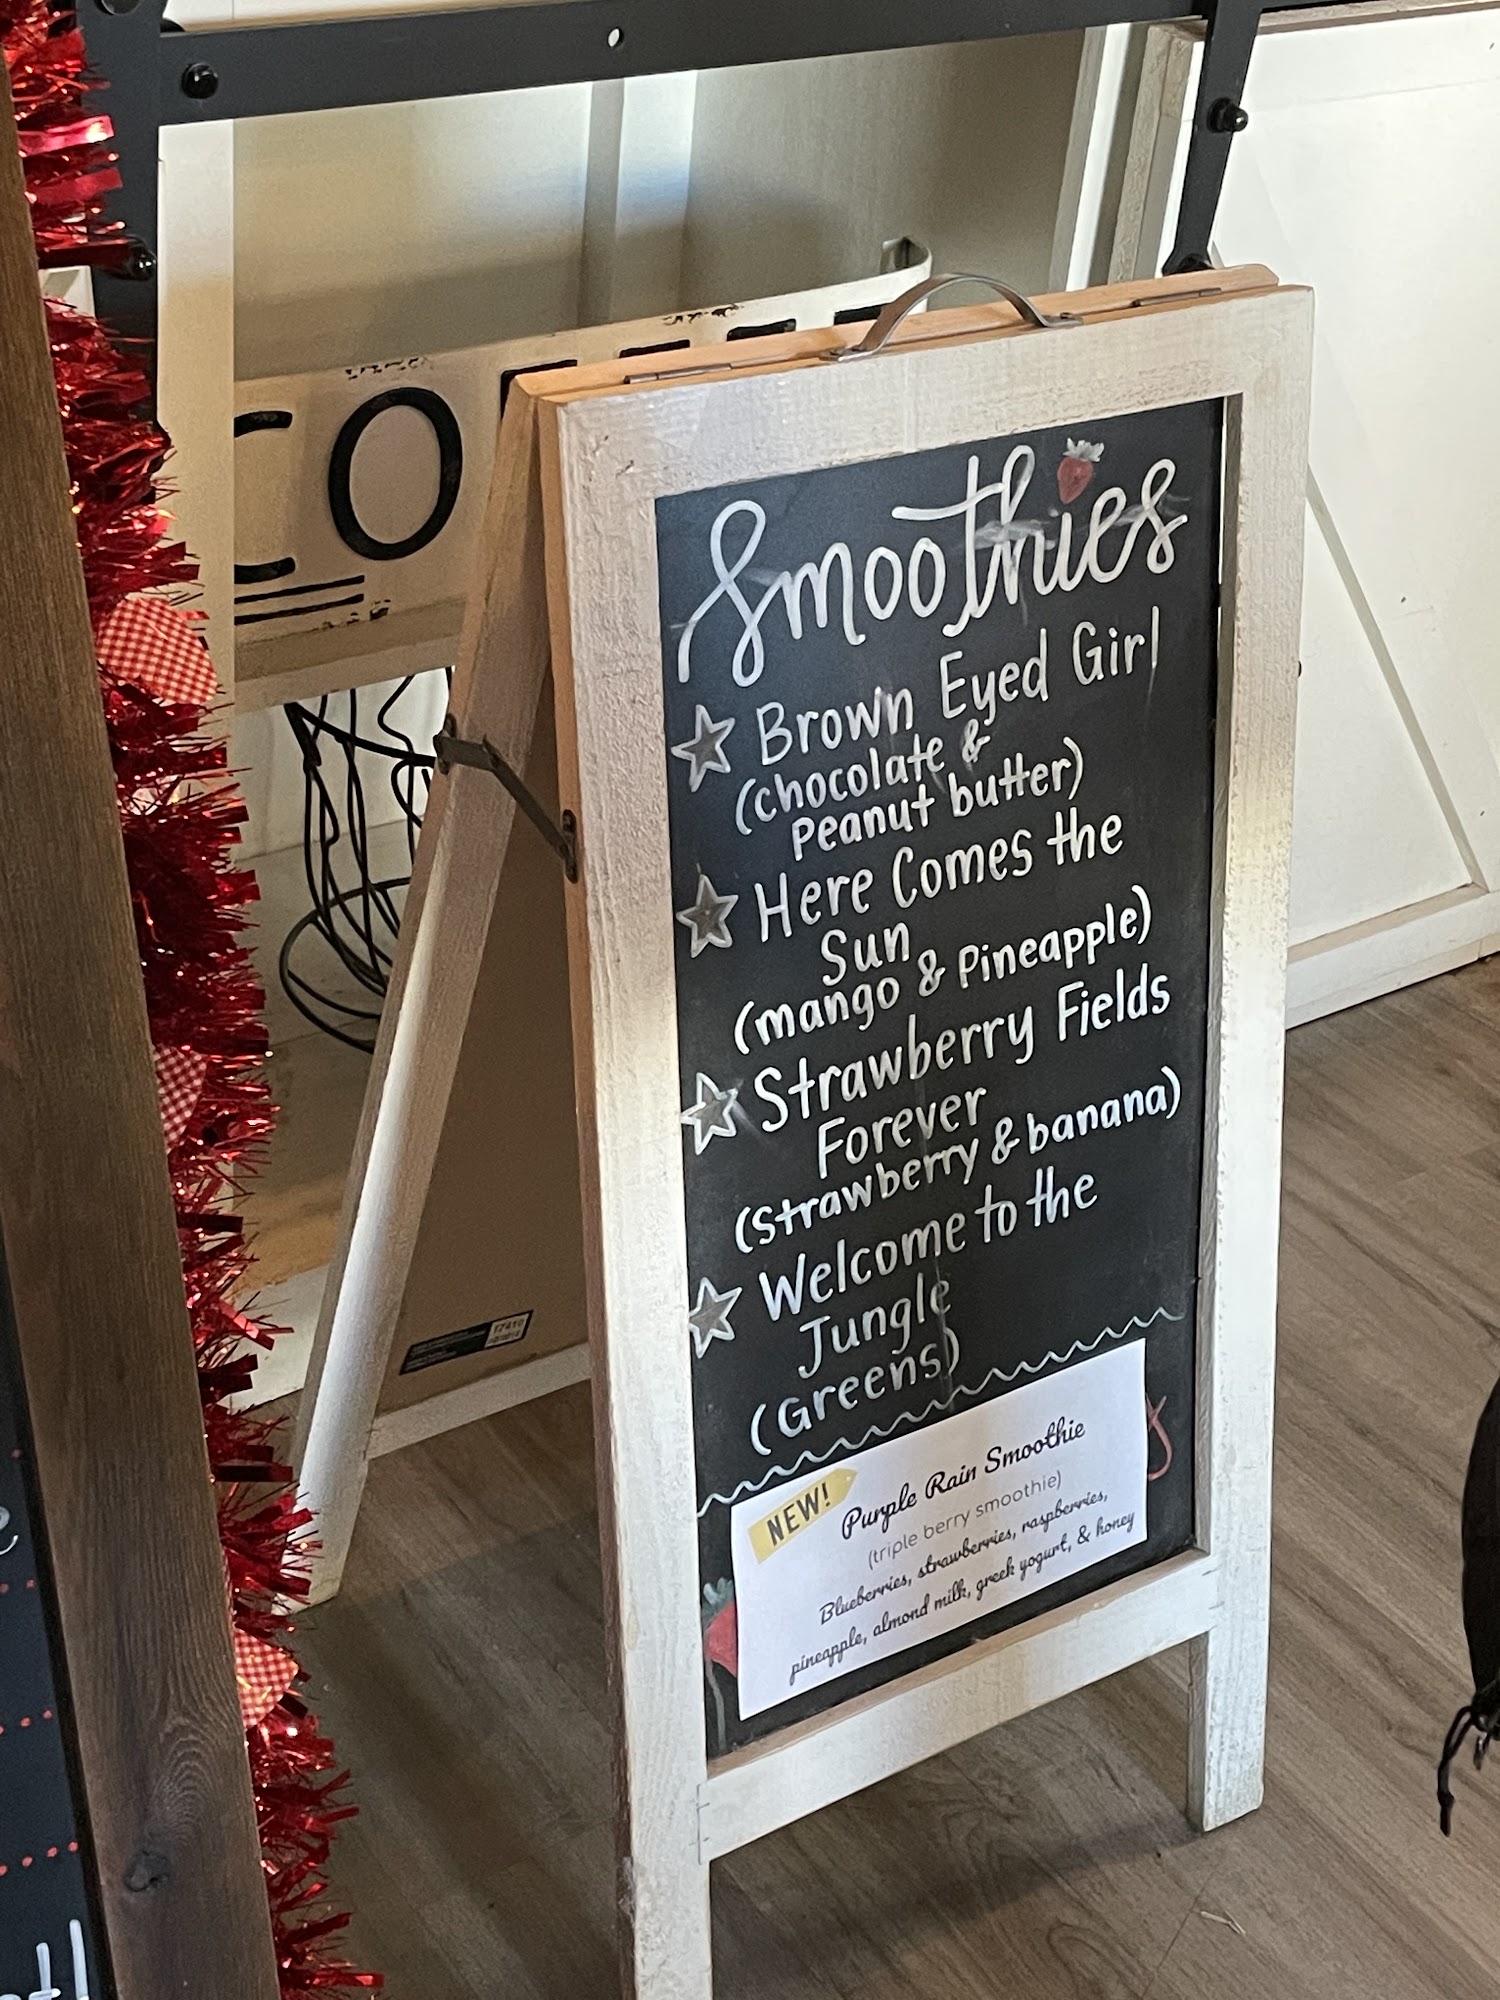 CO
Smoothies
Brown Eyed Girl
(chocolate &
Peanut butter)
Here Comes the
Sun
(mango & Pineapple)
Strawberry Fields
Forever
(Strawberry & banana)
Welcome to the
Jungle
(Greens)
NEW!
Purple Rain Smoothie
(triple berry smoothie)
Blueberries, strawberries, raspberries,
pineapple, almond milk, greek yogurt, & honey